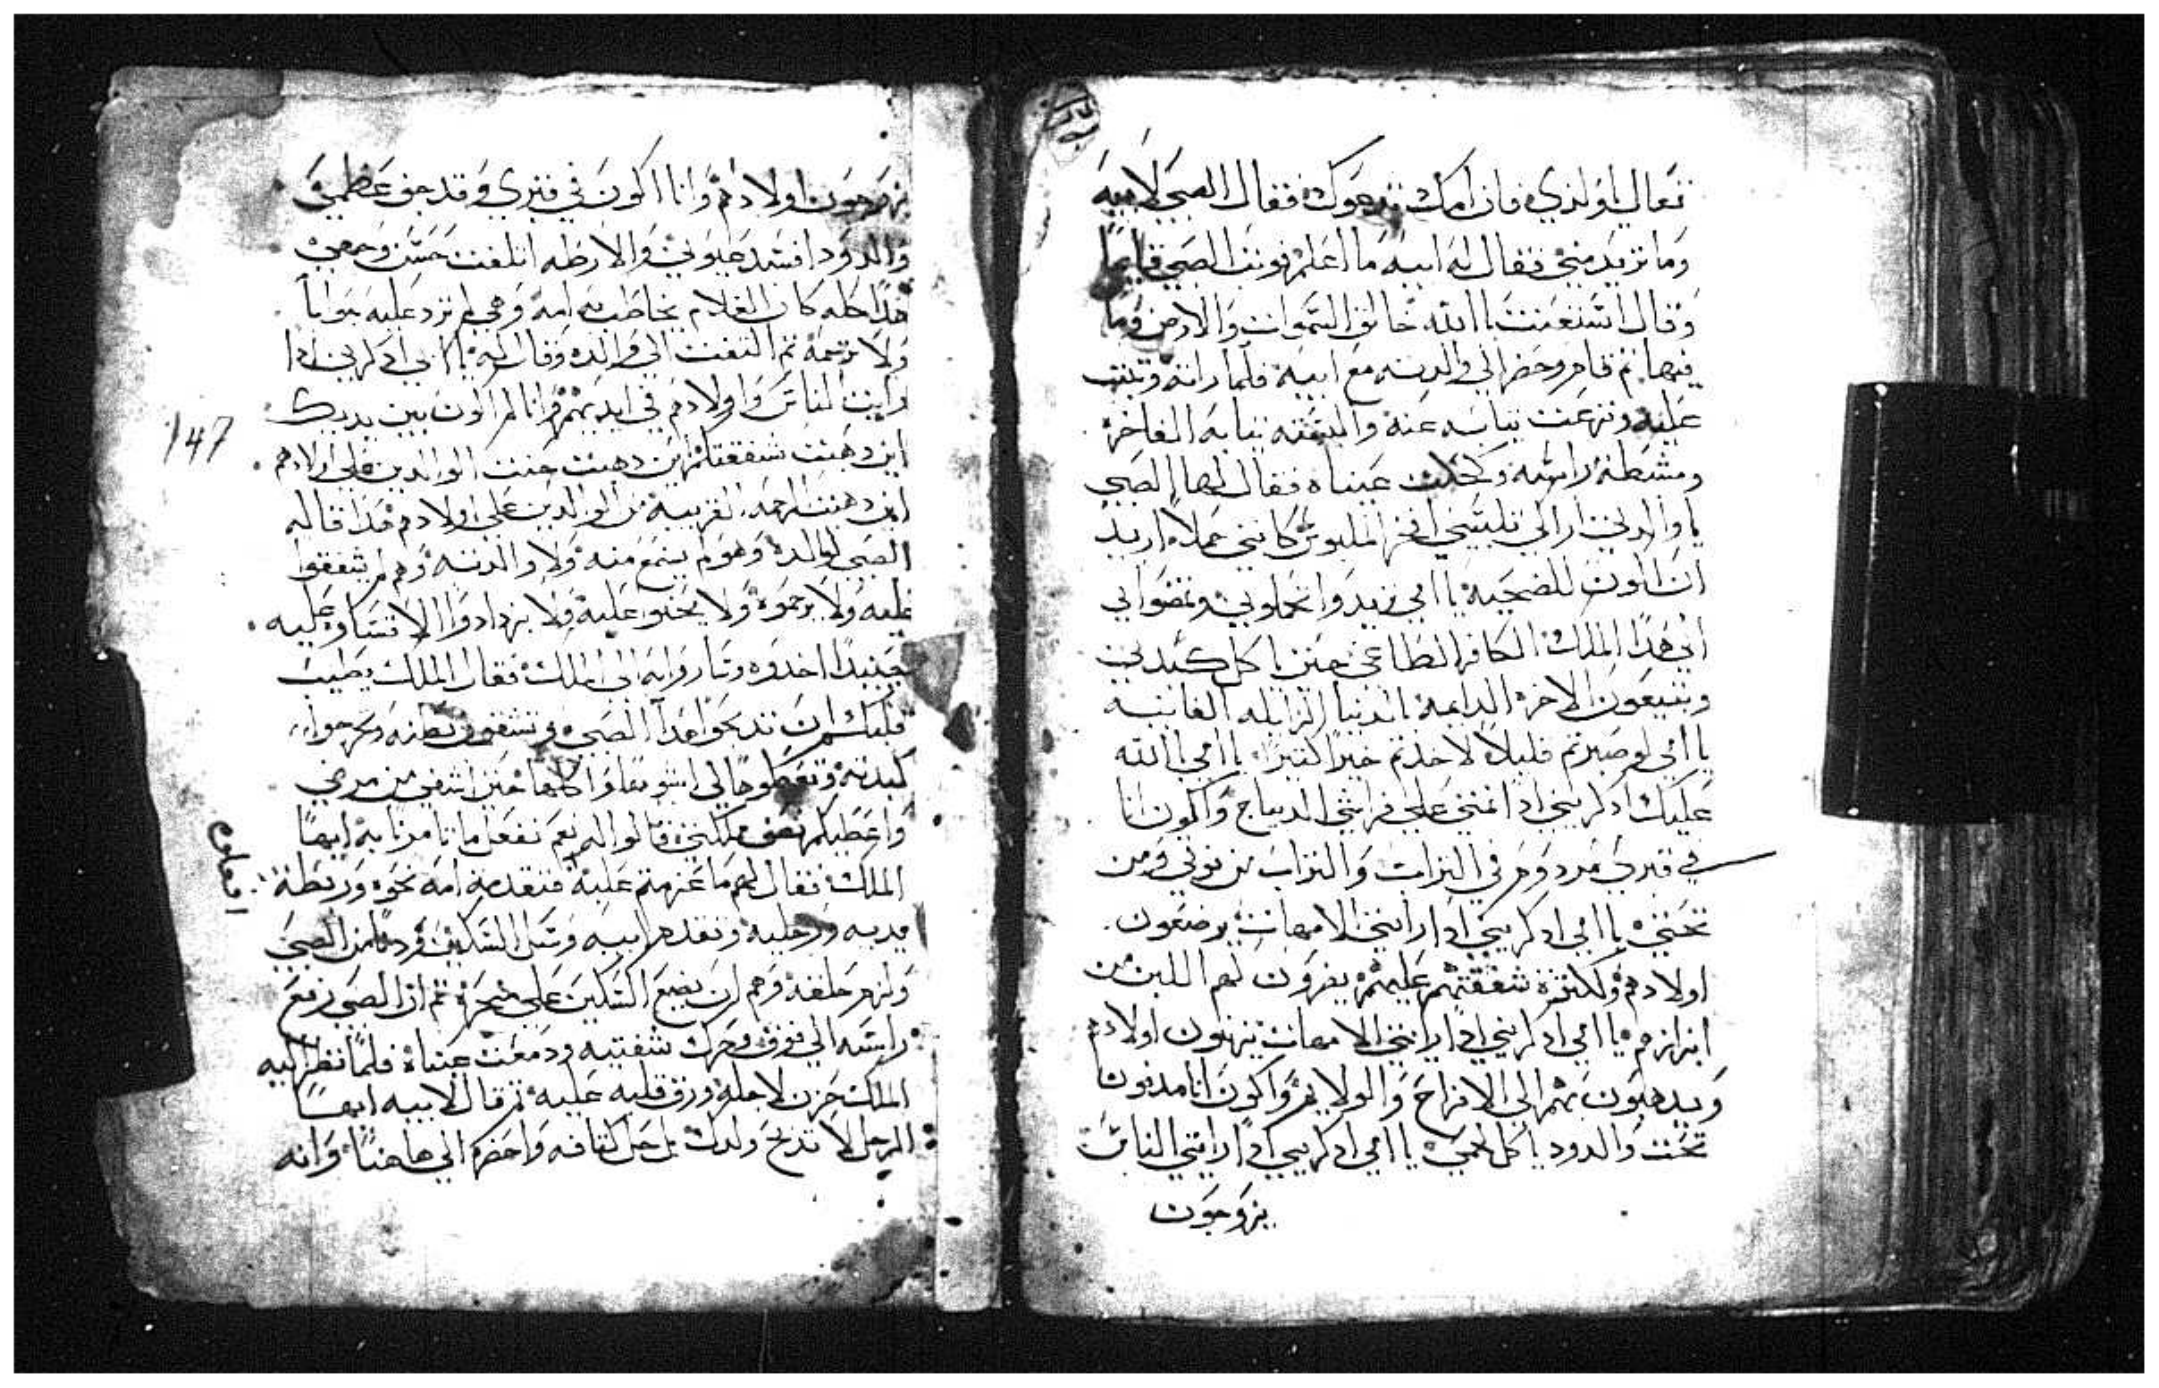 تعال يا ولدي فان امك تدعوك فقال الصبي لابيه
وما تريد مني فقال له ابيه ما اعلم فوثب الصبي قايما
وقال استعنت بالله خالق السموات والارض وما
فيهما ثم قام وحضر الي والدته مع ابيه فلما راته وثبت
عليه ونزعت ثيابه عنه والبسته ثيابه الفاخره
ومشطة راسه وكحلت عيناه فقال لها الصبي
يا والدتي اراكي تلبسيني افخر الملبوس كانني عملا اريد
ان اكون للضحيه يا امي تريدوا تحملوني وتمضوا بي
الي هدا الملك الكافر الطاغي حتي ياكل كبدتي
وتبيعون الاخره الدايمه بالدنيا الزايله الفانيه
يا امي لو صبرتم قليلا لاخدتم خيرا كتيرا يا امي الله
عليك ادكريني ادا نمتي علي فراش الديباج واكون انا
في قبري مردوم في التراب والتراب من فوقي ومن
تحتي يا امي ادكريني ادا رايتي الامهات يرضعون
اولادهم ولكترة شفقتهم عليهم يفرون لهم اللبن من
ابزازهم يا امي ادكريني ادا رايتي الامهات يزينون اولادهم
ويدهبون بهم الي الافراح والولايم واكون انا مدفون
تحت والدود ياكل لحمي يا امي ادكريني ادا رايتي الناس
يزوجون
يزوجون اولادهم وانا اكون في قبري وقد جف عظمي
والدود افسد عيوني والارضه اتلفت حسني وجمعي
هدا كله كان الغلام يخاطب به امه وهي لم ترد عليه جوابا
ولا ترحمه ثم التفت الي والده وقال له يا ابي ادكرني ادا
رايت الناس واولادهم في ايديهم وانا لم اكون بين يديك
اين دهبت شفقتكم اين دهبت حنت الوالدين علي اولادهم
اين دهبت الرحمه الغريبه من الوالدين علي اولادهم هدا قاله
الصبي لوالده وهو لم يسمع منه ولا والدته وهم لم يشفقوا
عليه ولا يرحموه ولا يحنوا عليه ولا يزدادوا الا قساوه عليه
فحينيدا اخدوه وساروا به الي الملك فقال الملك يطيب
قلبك ان تدبحوا هدا الصبي وتشقون بطنه وتخرجوا
كبدته وتعطوها لي اشويها واكلها حتي اشفي من مرضي
واعطيكم نصف مملكتي قالوا له نعم نفعل ما تامرنا به ايها
الملك فقال لهم ما عزمتم عليه افعلوه فتقدمة امه نحوه وربطة
يديه ورجليه وتقدم ابيه وسل السكين ودنا من الصبي
ولزم حلقه وهم ان يضع السكين علي منحره ثم ان الصبي رفع
راسه الي فوق وحرك شفتيه ودمعت عيناه فلما نظر اليه
الملك حزن لاجله ورق قلبه عليه ثم قال لابيه ايها
الرجل لا تدبح ولدك بل حل كتافه واحضره الي هاهنا وانه
147